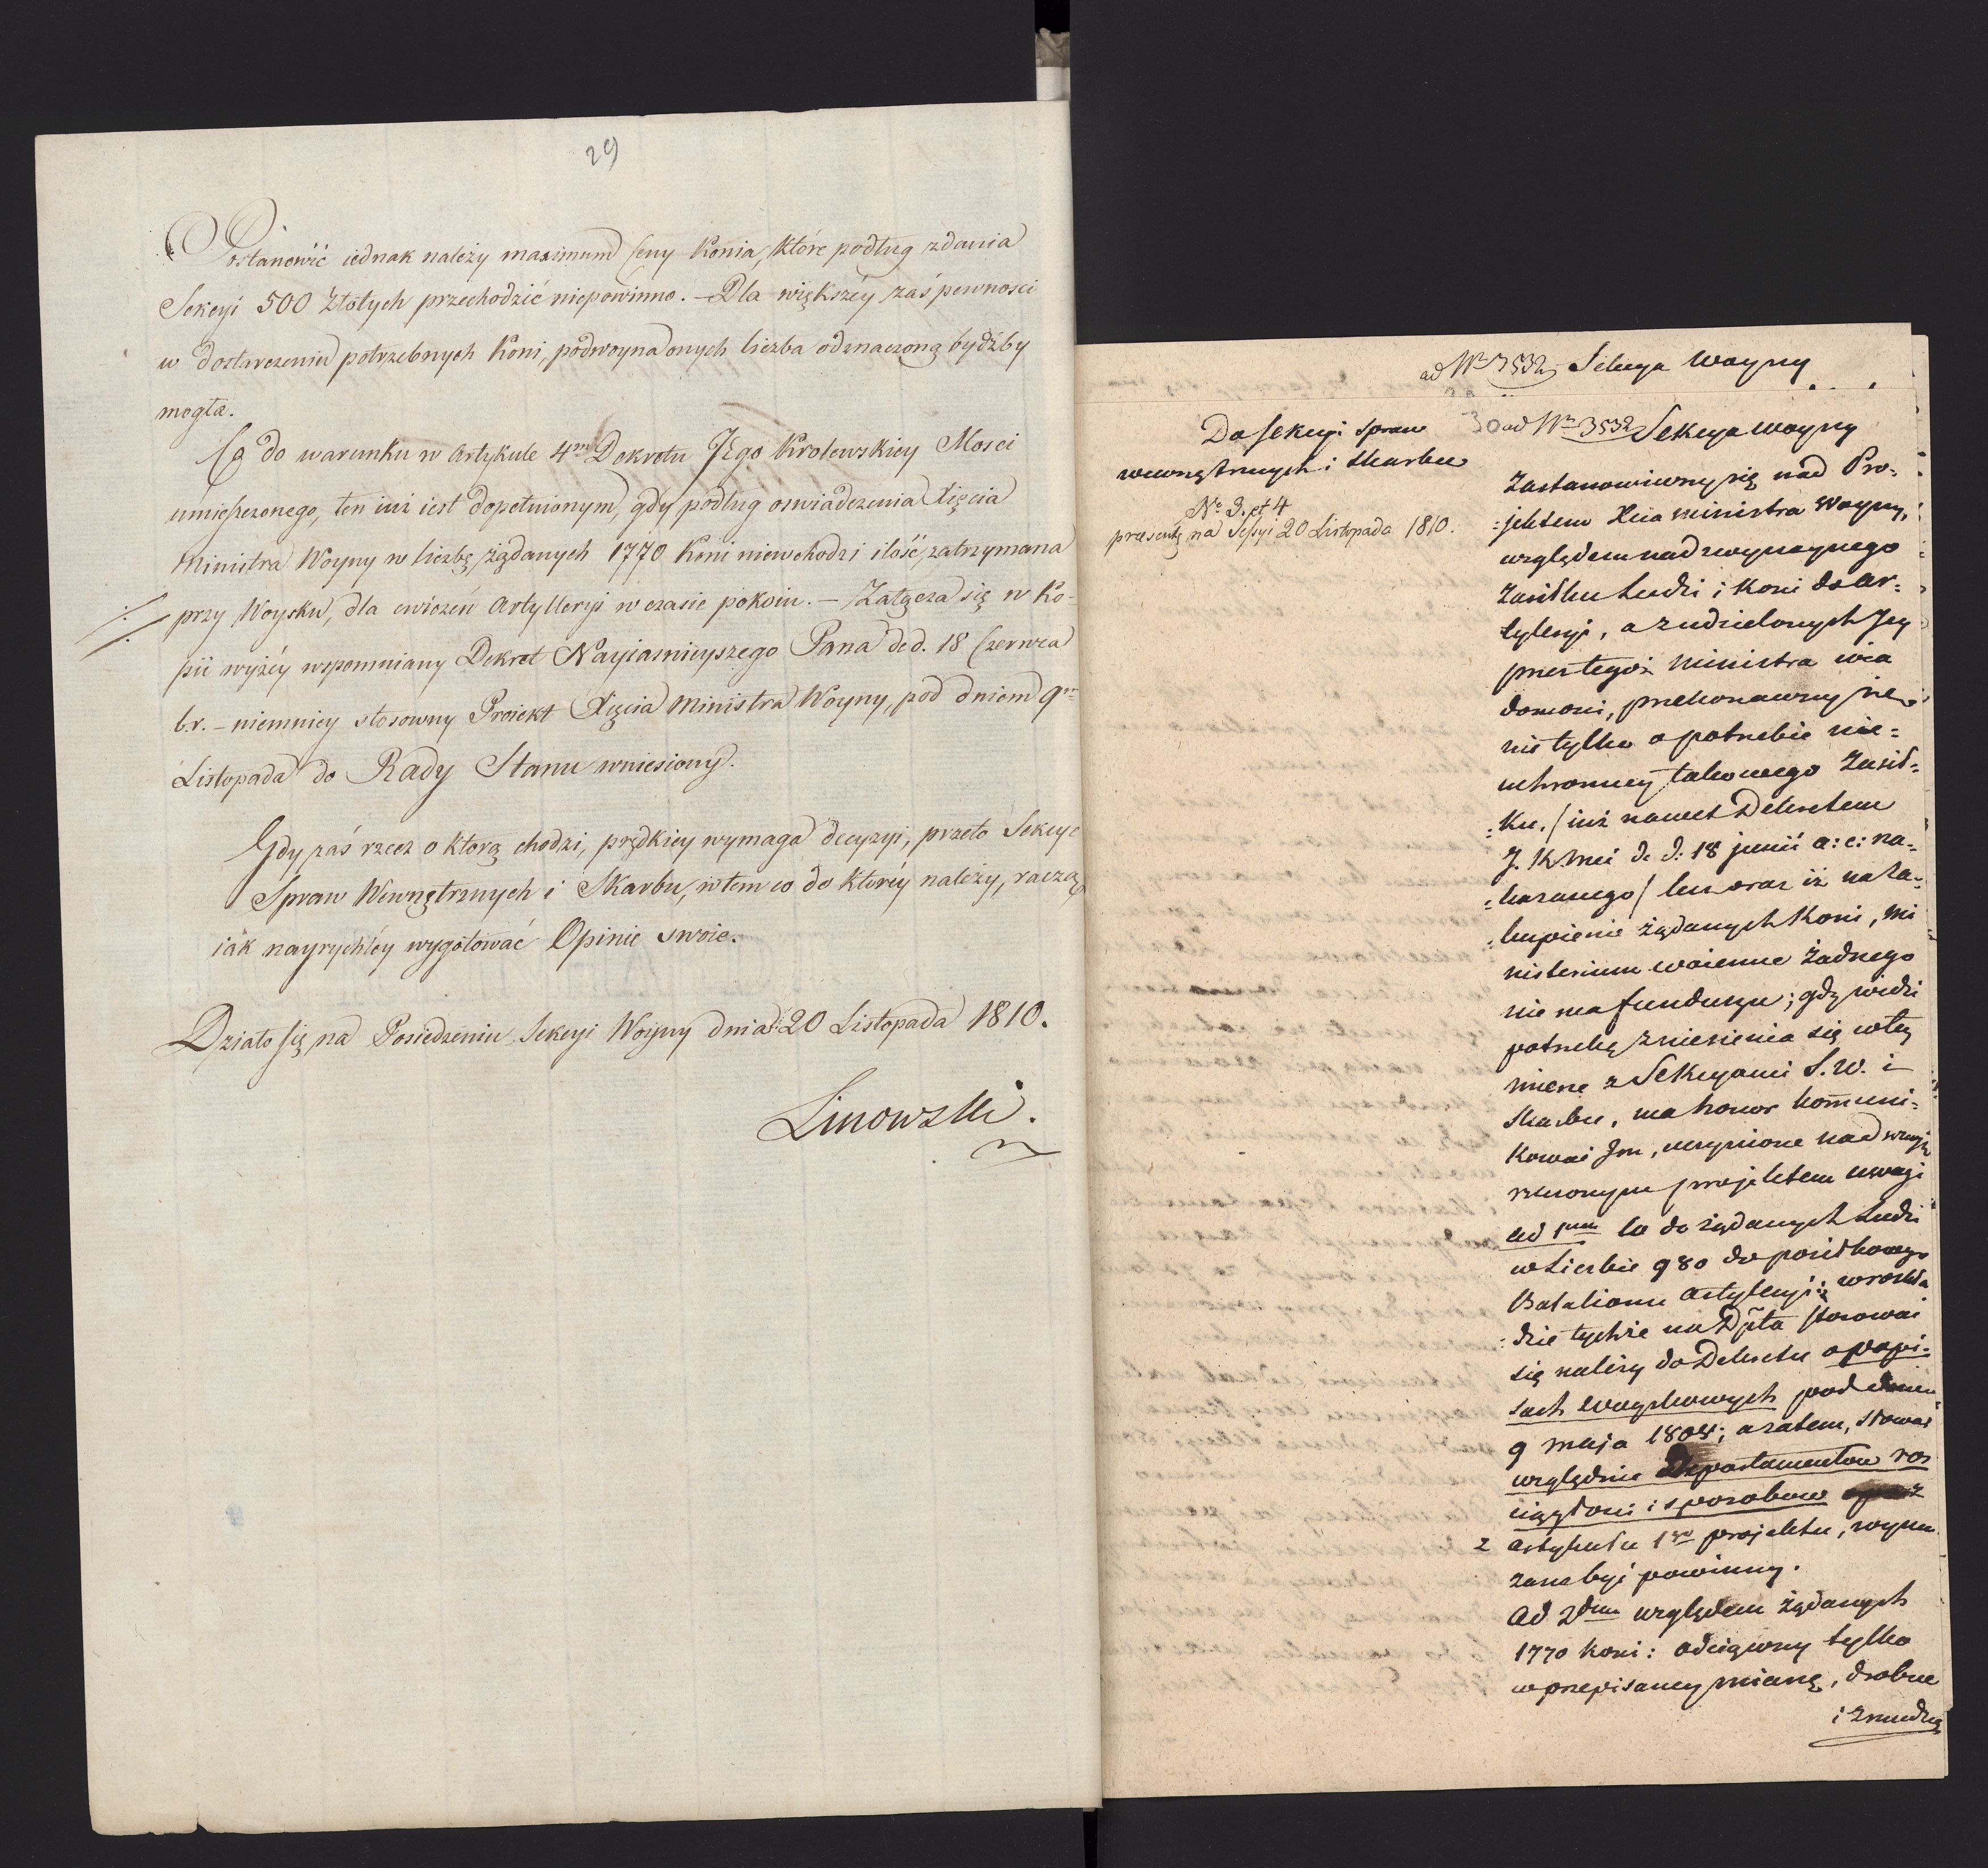 29
Postanowić iednak należy maximum Ceny Konia, które podług zdania
Sekcyi 500 Złotych przechodzić niepowinno. – Dla większéy zaś pewnosci
w dostarczeniu potrzebnych Koni, podwoyna onych liczba odznaczoną bydźby
mogła.
Co do warunku w Artykule 4m Dekretu Jego Krolewskiey Mosci
umieszczonego, ten iuż iest dopełnionym, gdy podług oswiadczenia Xięcia
Ministra Woyny w liczbę żądanych 1770 Koni niewchodzi ilość, zatrzymana
przy Woysku, dla cwiczeń Artylleryi w czasie pokoiu. – Załącza się w Ko-
pii wyżéy wspomniany Dekret Nayiasnieyszego Pana de d. 18 Czerwca
b.r. – niemniey stosowny Proiekt Xięcia Ministra Woyny, pod dniem 9m
Listopada do Rady Stanu wniesiony.
Gdy zaś rzecz o którą chodzi, prędkiey wymaga decyzyi, przeto Sekcye
Spraw Wewnętrznych i Skarbu, w tem co do któréy należy, raczą
iák nayrychléy wygotować Opinie swoie.
Działo się na Posiedzeniu Sekcyi Woyny dnia 20 Listopada 1810.
Linowski.
ad Nr 3532 Sekcya Woyny
Do Sekcyi Spraw
wewnętrznych i Skarbu
No 3. et 4
praesentę na Sessyi 20 Listopada 1810.
30 ad Nr 3532 Sekcya Woyny
Zastanowiwszy się nad Pro-
jektem Xcia Ministra Woyny,
względem nadzwyczaynego
Zasiłku Ludzi i Koni do Ar-
tyleryi, a z udzielonych Jey
przez tegoż Ministra wia
domosci, przekonawszy się
nie tylko o potrzebie nie-
uchronney takowego Zasił-
ku, / iuż nawet Dekretem
J. K Mci de d: 18 junii a: c: na-
kazanego / lecz oraz iż na za-
kupienie żądanych Koni, mi
nisterium woienne żadnego
nie ma funduszu; gdy widzi
potrzebę zniesienia się w tey
mierze z Sekcyami S. W. i
Skarbu, ma honor kommuni-
kować Im, uczynione nad wyż
rzeczonym projektem uwagi
ad 1mum Co do żądanych Ludzi
w Liczbie 980 do posiłkowego
Batalionu Artyleryi; w rozkła
dzie tychże na Dpta stosować
się należy do Dekretu o popi-
sach woyskowych pod dniem
9 maja 1808; a zatem, słowa
względnie Departamentow roz
ciągłosci i sposobow
z Artykułu 1go projektu, wyma
zane być powinny.
Ad 2dum względem żądanych
1770 Koni: odciąwszy tylko
w przepisaney mianę, drobne
i zmudzkie